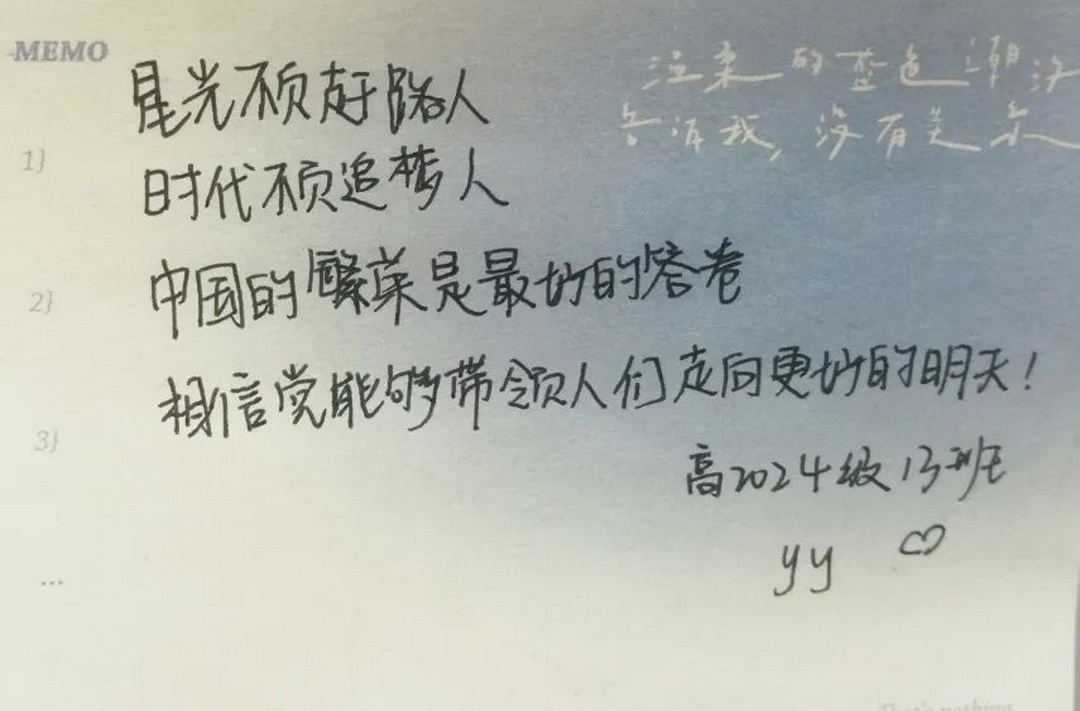 MEMO
星光不负赶路人
时代不负追梦人
中国的繁荣是最好的答卷
相信党能够带领人们走向更好的明天!
高2024级13班
yy ♡
的蓝色潮汐
告诉我,没有关系
1}
2}
3}
...
That's nothing